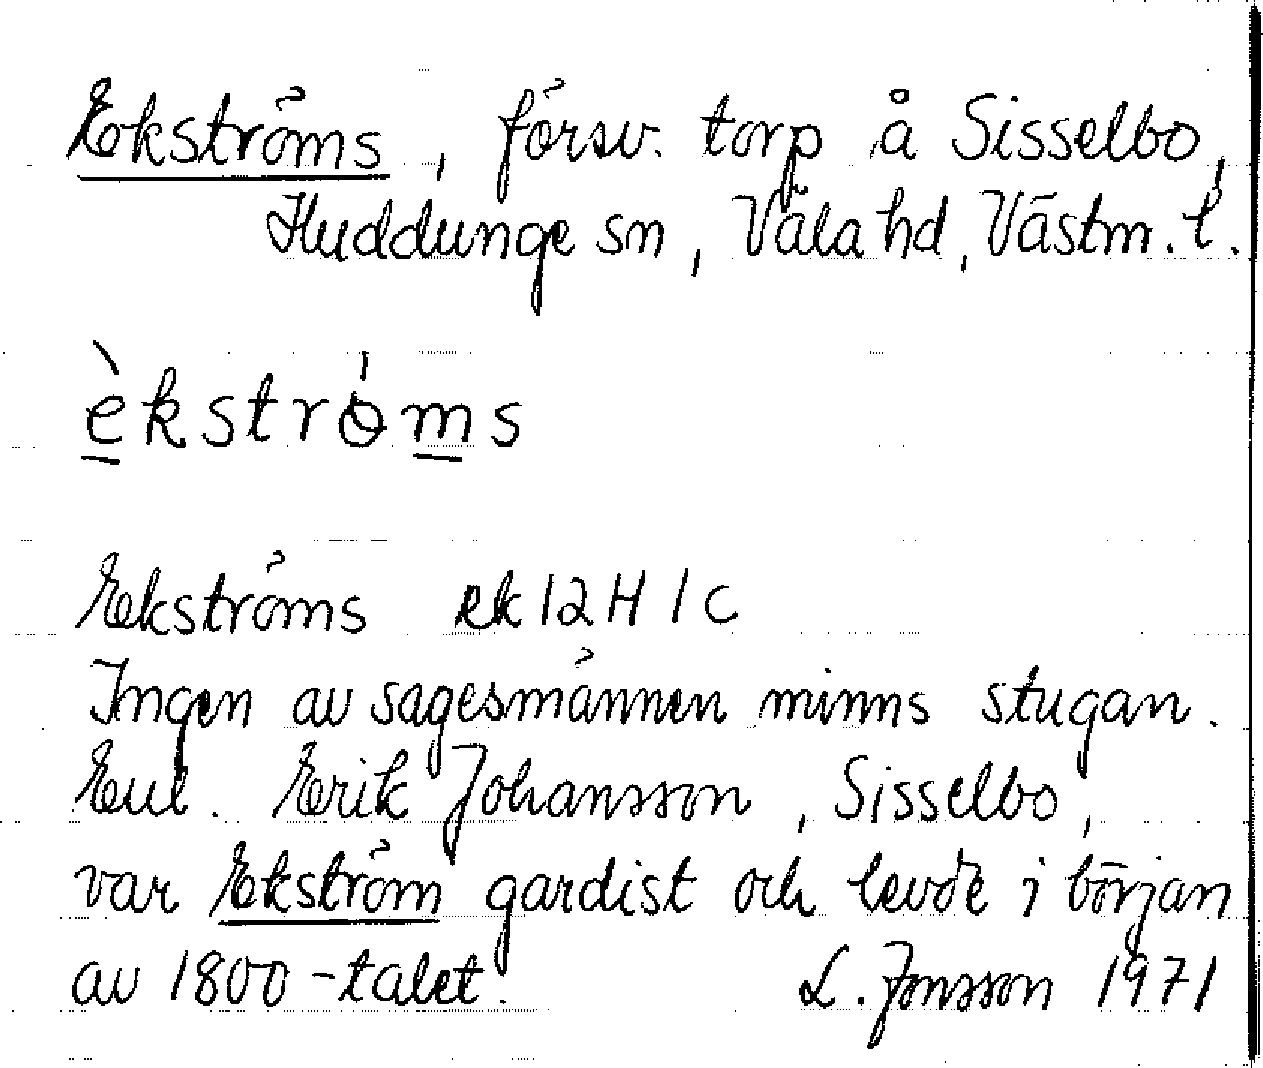 Ekströms, försv. torp å Sisselbo,
Huddunge sn, Våla hd, Västm. l.
èkströ̀ms
Ekströms ek 12 H 1 c
Ingen av sagesmännen minns stugan.
Enl. Erik Johansson, Sisselbo,
var Ekström gardist och levde i början
av 1800-talet. L. Jonsson 1971